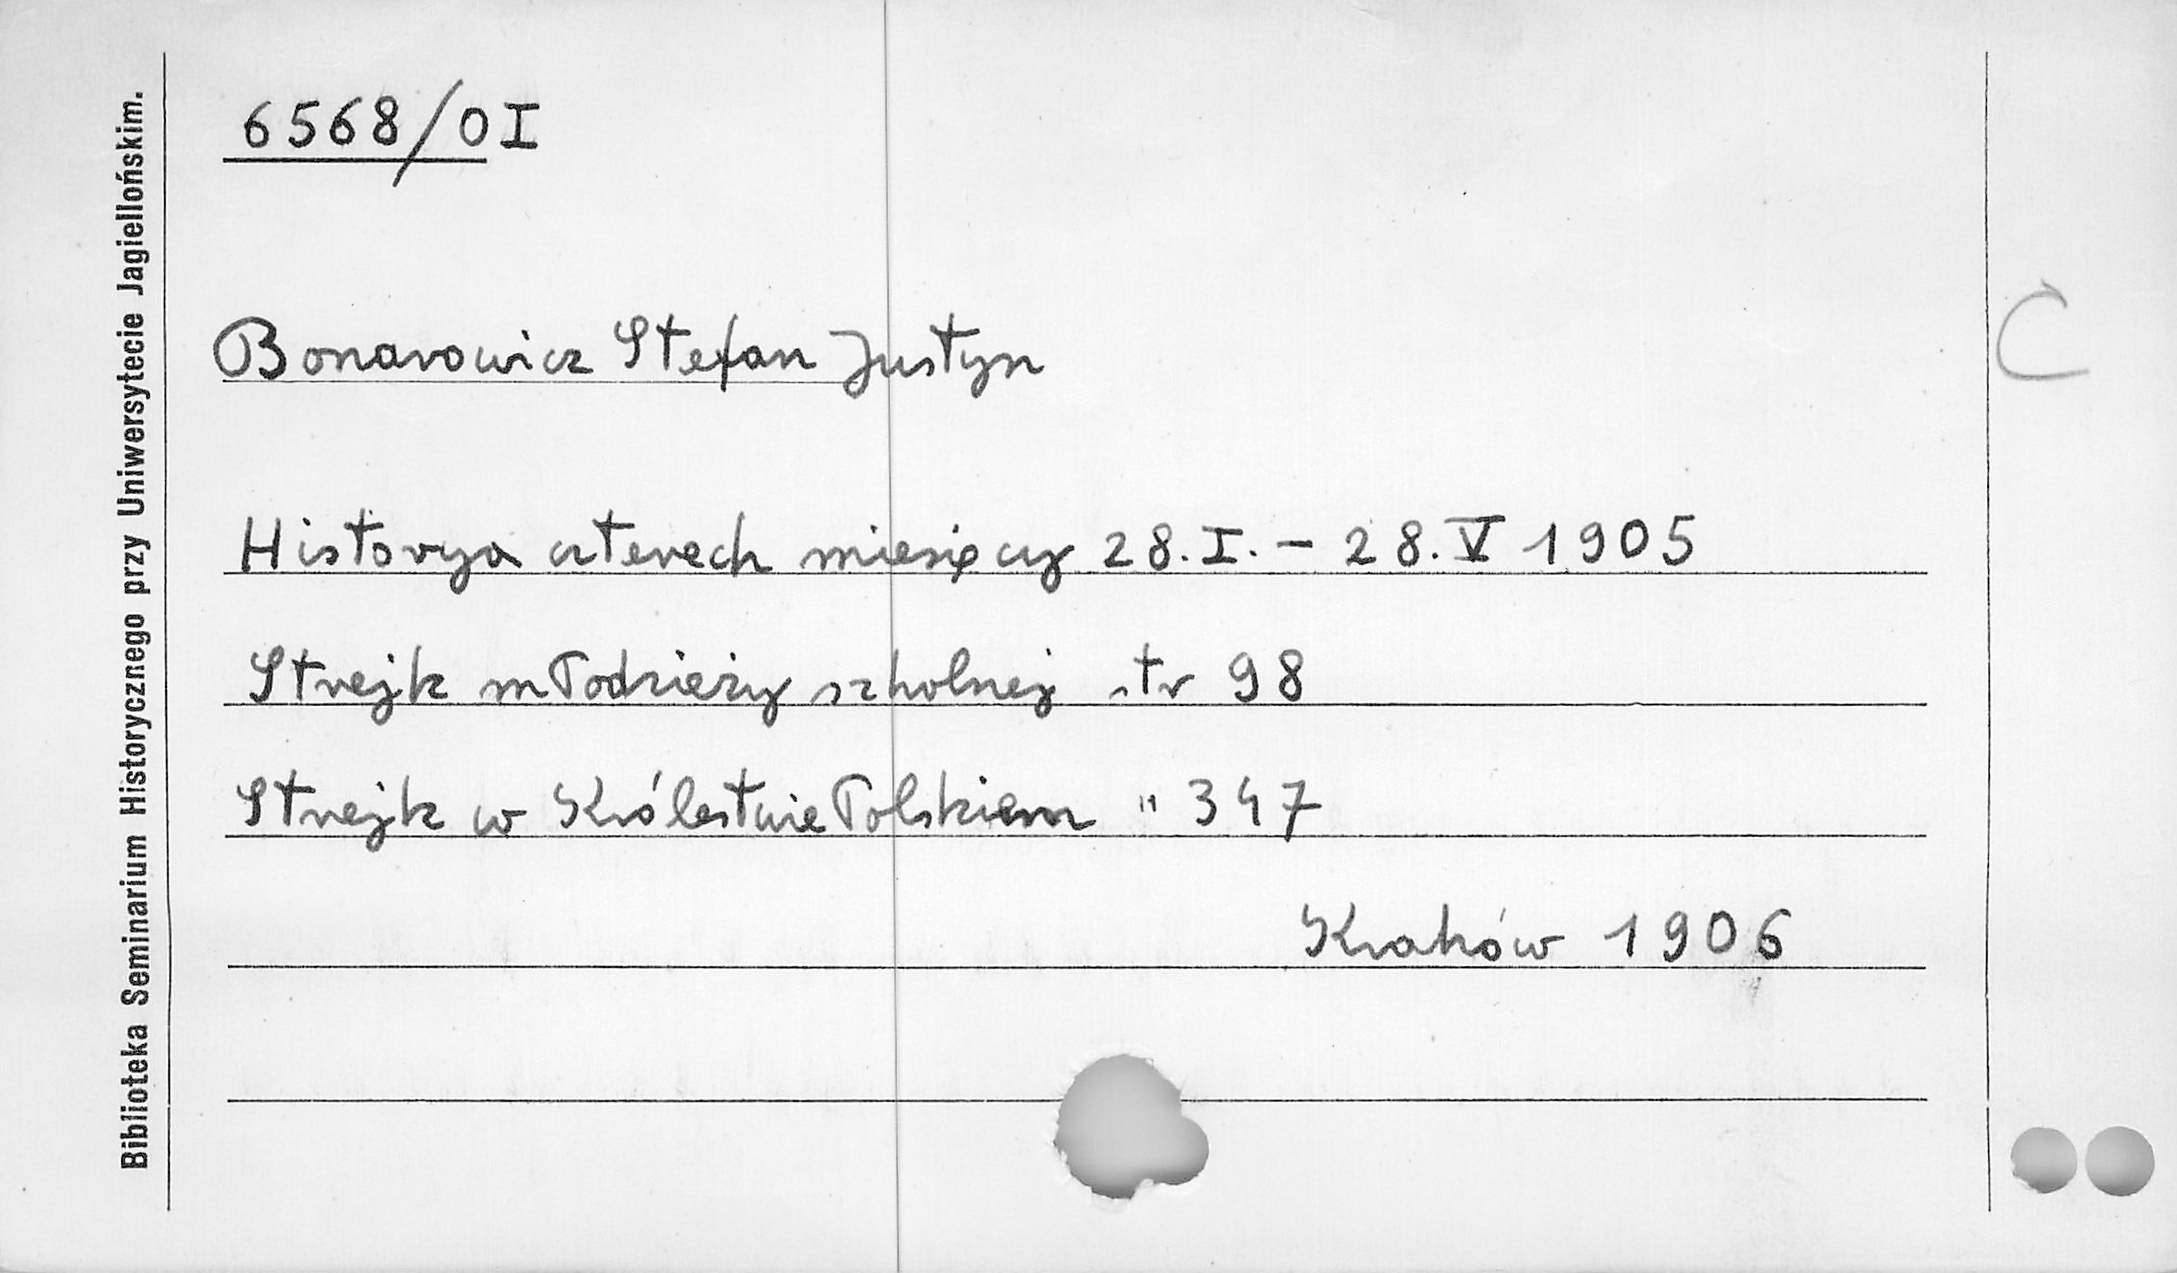 6568/0 I
Bonarowicz Stefan Justyn
Historya czterech miesięcy 28.I. - 28.V 1905
Strejk młodzieży szkolnej str 98
Strejk w Królestwie Polskiem " 347
Kraków 1906
C
Biblioteka Seminarium Historycznego przy Uniwersytecie Jagiellońskim.